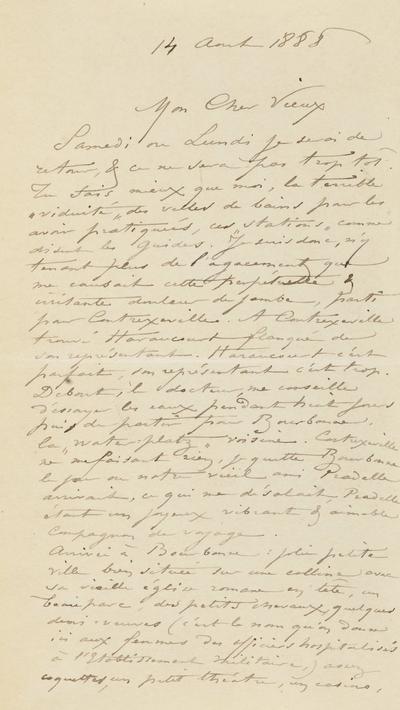 14 Aout 1888
Mon Cher Vieux
Samedi ou Lundi je serai de
retour, & ce ne sera pas trop tôt.
Tu sais mieux que moi, la terrible
"viduité" des villes de bains pour les
avoir pratiquées, ces "stations" comme
disent les Guides. Je suis donc, n'y
tenant plus de l'agacement que
me causait cette perpétuelle &
irritante douleur de jambe, parti
pour Contrexeville. A Contrexeville
trouvé Haraucourt flanqué de
son représentant. Haraucourt c'est
parfait, son représentant c'est trop.
Debout, le docteur, me conseille
d'essayer les eaux pendant huit jours
puis de partir pour Bourbonne,
la "water-platz" voisine. Contrexeville
ne me faisant rien, je quitte Bourbonne
le jour où notre vieil ami Pradelle
arrivant, ce qui me désolait, Pradelle
étant un joyeux vibrant & aimable
compagnon de voyage.
Arrivée à Bourbonne : jolie petite
ville bien située sur une colline avec
sa vieille église romane en tête, un
beau parc, des petits chevaux, quelques
demi-veuves (c'est le nom qu'on donne
ici aux femmes des officiers hospitalisés
à l'Etablissement militaire,) assez
coquettes, un petit théatre, un casino,